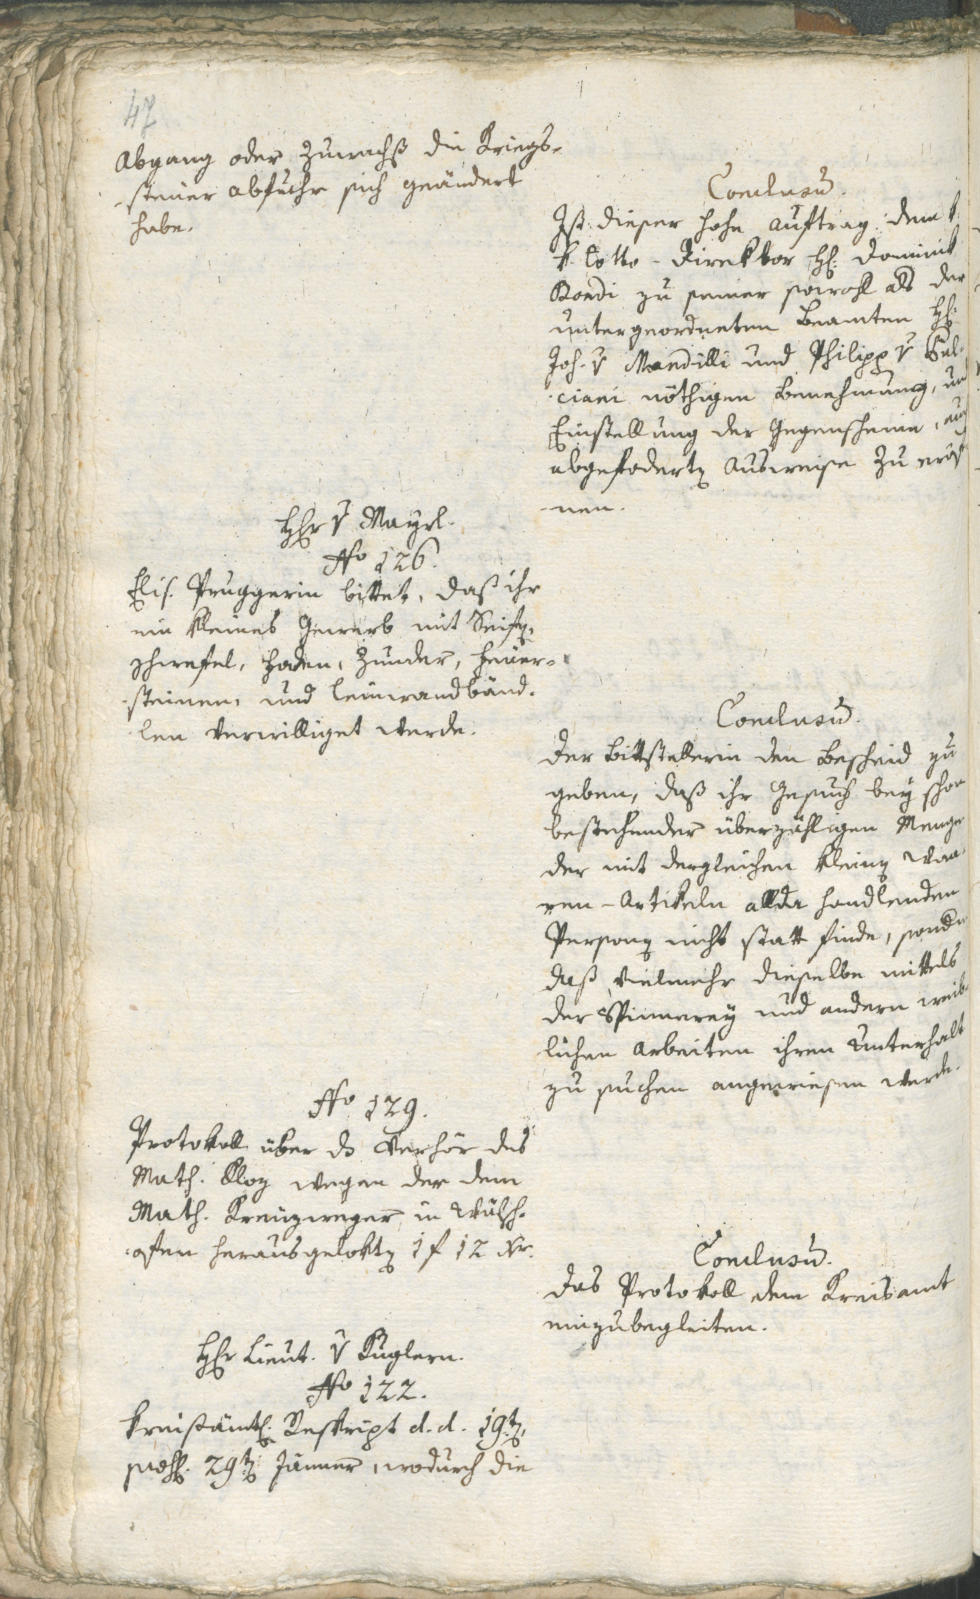 47
Abgang oder Zuwachß die Kriegs-
steuer abfuhr sich geändert
habe.
Conclusū.
Ist dieser hohe Auftrag dem k.
k. Lotto-Direktor H: Dominik
Bondi zu seiner sowohl als der
untergeordneten Beamten H:
Joh. v Mandilli und Philipp v Sul-
ciani nöthigen Benehmung, und
Einstellung der Gegenscheine, auch
abgefodertē Ausweise zu eröf
nen.
Hr v Mayrl.
No 126.
Elis. Pruggerin bittet, daß ihr
ein kleines Gewerb mit Seifē,
Schwefel, Faden, Zunder, Feuer-
steinen, und Leinwandbänd-
len verwilliget werde.
Conclusū.
Der Bittstellerin den Bescheid zu
geben, daß ihr Gesuch bey schon
bestehender überzähligen Menge
der mit dergleichen kleinē Waa-
ren-Artikeln allda handlenden
Personē nicht statt finde, sondern
daß vielmehr dieselbe mittels
der Spinnerey und andern weib-
lichen Arbeiten ihren Unterhalt
zu suchen angewiesen werde.
No 129.
Protokoll über ds Verhör des
Math. Kloz wegen der dem
Math. Kreuzweger in Wälsch-
ofen herausgeloktē 1 f 12 Xr.
Conclusū.
Das Protokoll dem Kreisamt
einzubegleiten.
Hr Lieut. v Kuglern.
No 122.
Kreißämtl. Reskript d. d. 19tē,
29tē Jänner, wodurch die